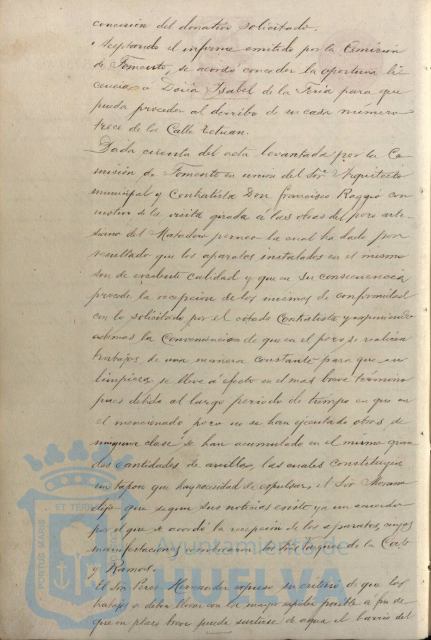 concesión del donativo solicitado.
Aceptando el informe emitido por la Comisión
de Fomento, se acordó conceder la oportuna li
cencia a Doña Isabel de la Feria para que
pueda proceder al derribo de su casa número
trece de la Calle Tetuan.
Dada cuenta del acta levantada por la Co
misión de Fomento en unión del Sor Arquitecto
municipal y Contratista Don Francisco Raggio con
motivo de la visita girada a las obras del pozo arte
siano del Matadero la cual ha dado por
resultado que los aparatos instalados en el mismo
son de excelente calidad y que en su consecuencia
procede la recepción de los mismos de conformidad
con lo solicitado por el citado Contratista y
ademas la conveniencia de que en el pozo se realicen
trabajos de una manera constante para que su
limpieza se lleve á efecto en el mas breve término
pues debido al largo periodo de tiempo en que en
el mencionado pozo no se han ejecutado obras de
ninguna clase se han acumulado en el mismo gran
des cantidades de arcillas, las cuales constituyen
un tapon que hay necesidad de expulsar, el Sor Moreno
dijo que segun sus noticias existe ya un acuerdo
por el que se acordó la recepción de los aparatos cuyas
manifestaciones los Sres de la Corte
y Ramos.
El Sor Perez Hernandez expuso su criterio de que los
trabajos deben llevarse con la mayor rapidez posible a fin de
que en plazo breve pueda surtirse de agua el barrio del
PORTUS MARIS ET TERRAE
Ayuntamiento de
HUELVA